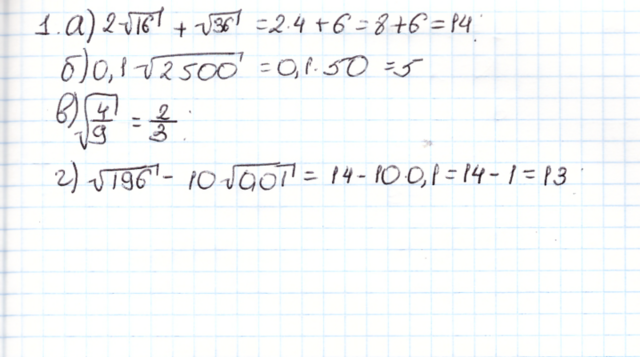 1. а) 2√16 + √36 = 2·4 + 6 = 8 + 6 = 14
б) 0,1√2500 = 0,1·50 = 5
в) √4/9 = 2/3
г) √196 - 10√0,01 = 14 - 10·0,1 = 14 - 1 = 13